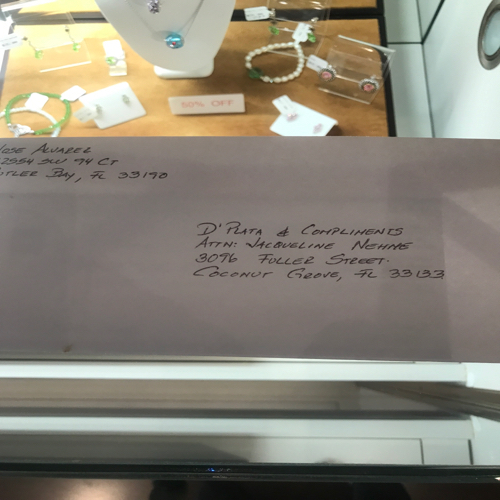 50% OFF
Jose Alvarez
SW 94 Ct
Cutler Bay, FL 33190
D'Plata & Compliments
Attn: Jacqueline Nehme
3096 Fuller Street.
Coconut Grove, FL 33133